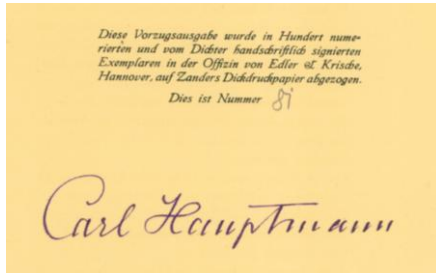 Diese Vorzugsausgabe wurde in Hundert nume-
rierten und vom Dichter handschriftlich signierten
Exemplaren in der Offizin von Edler & Krische,
Hannover, auf Zanders Dickdruckpapier abgezogen.
Dies ist Nummer 81
Carl Hauptmann